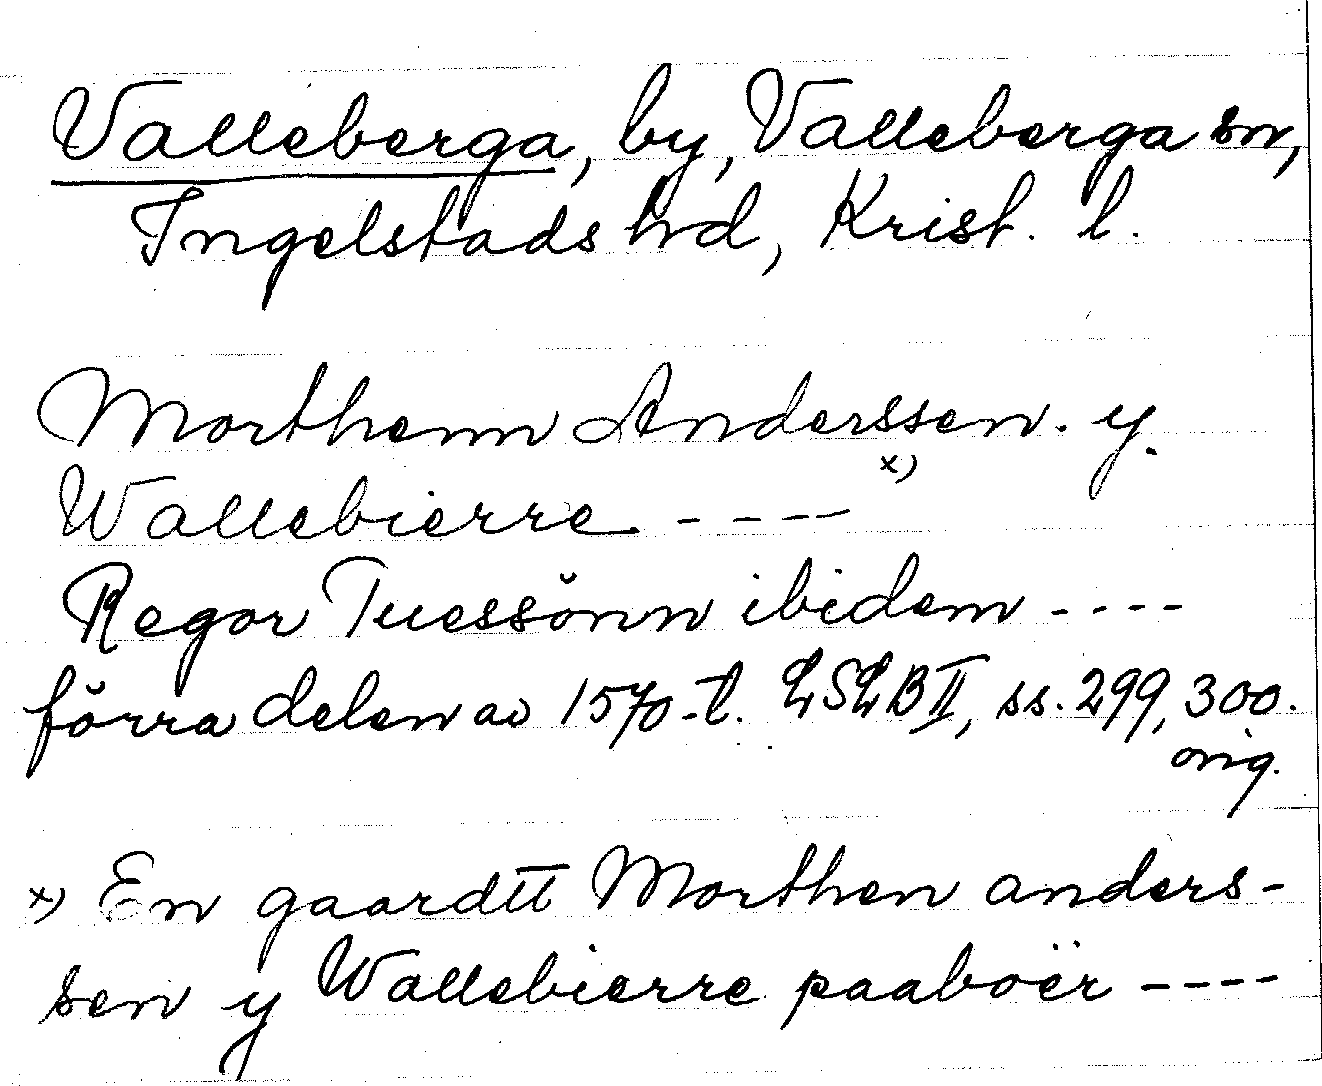 Valleberga, by, Valleberga sn,
Ingelstads hrd, Krist. l.
Morthenn Anderssen. y.
Wallebierre - - - - x)
Regor Tuessönn ibidem - - - -
förra delen av 1570-t. LSLB II, ss. 299, 300.
orig.
x) En gaardtt Morthen anders-
sen y Wallebierre paaboër - - - -